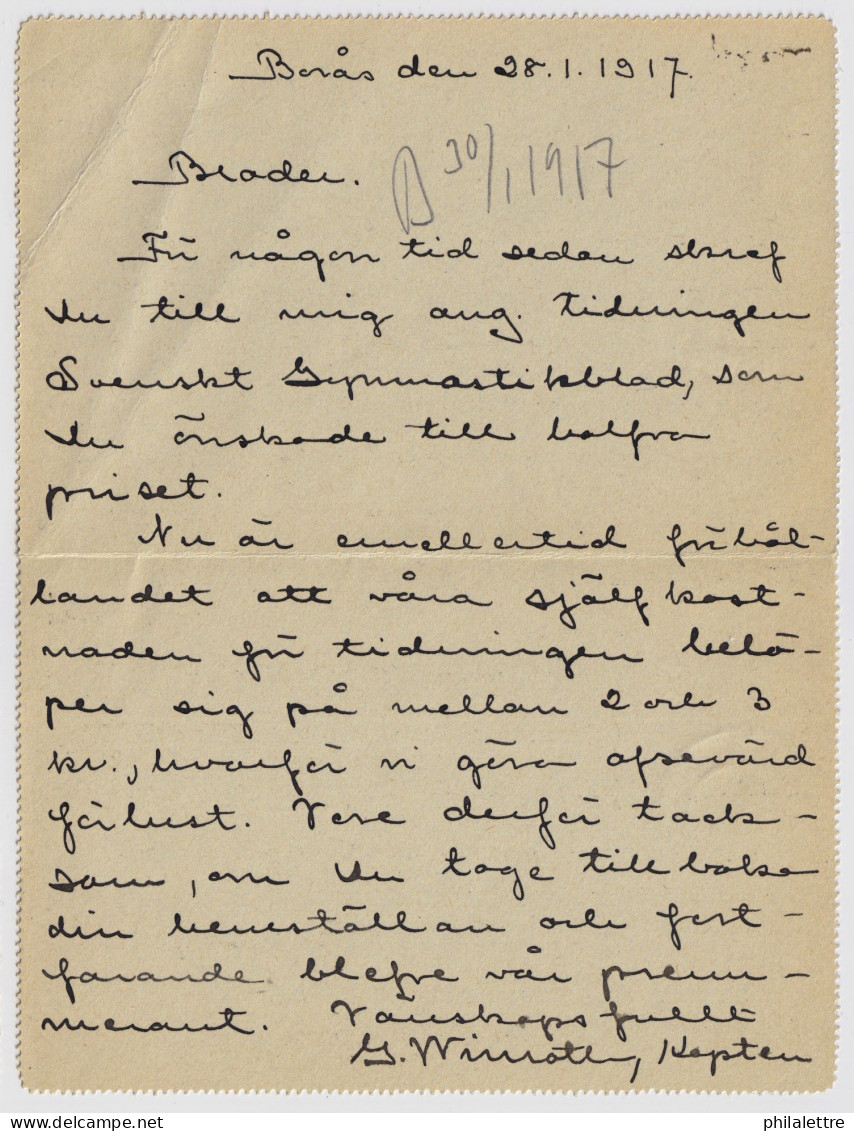 Borås den 28.1.1917.
Broder.
B 30/1 1917
För någon tid sedan skref
du till mig ang. tidningen
Svenskt Gymnastikblad, som
du önskade till halfva
priset.
Nu är emellertid förhål-
landet att våra själfkost-
naden för tidningen belö-
per sig på mellan 2 och 3
kr., hvarför vi göra afsevärd
förlust. Vore derför tack-
sam, om du toge tillbaka
din hemställan och fort-
farande blefve vår prenu-
merant. Vänskapsfullt
G. Kapten
philalettre